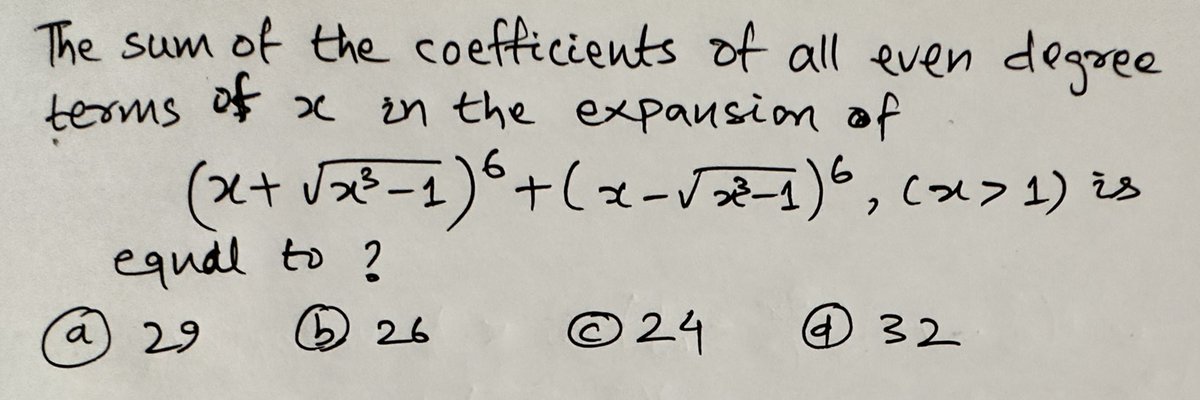 The sum of the coefficients of all even degree
terms of x in the expansion of
(x + √(x³ – 1))⁶ + (x – √(x³ – 1))⁶, (x > 1) is
equal to ?
(a) 29 (b) 26 (c) 24 (d) 32